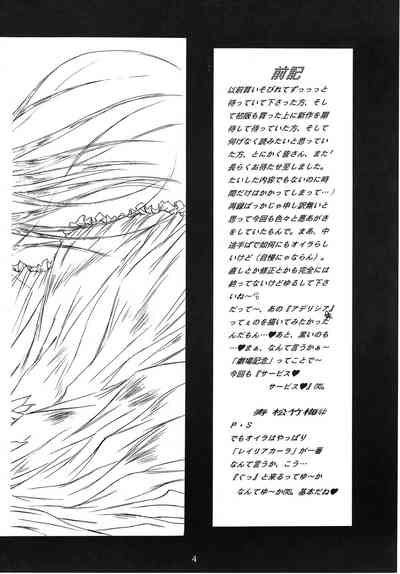 前記
以前買いそびれてずっっっと
待っていて下さった方、そし
て初版も買った上に新作を期
待して待っていた方、そして
何げなく読みたいと思ってい
た方、とにかく皆さん、また！
長らくお待たせ至しました。
たいした内容でもないのに時
間だけはかかってしまって…）
再録ばっかじゃ申し訳無いと
思って今回も色々と悪あがき
をしていたもんで。まあ、中
途半ぱで如何にもオイラらし
いけど（自慢にゃならん）。
直しとか修正とかも完全には
終ってないけどゆるして下さ
いね〜
だって〜、あの『アデリシア』
ってぇの描いてみたかった
んだもん…♥あと、黒いのも
…♥まぁ、なんて言うかぁ〜
「劇場記念」ってことで〜
今回も『サービス♥
サービス♥』
寿 松竹梅
P・S
でもオイラはやっぱり
「レイリアカーラ」が一番
なんて言うか、こう…
『ぐっ』と来るってゆ〜か
なんてゆ〜か 基本だね♥
4